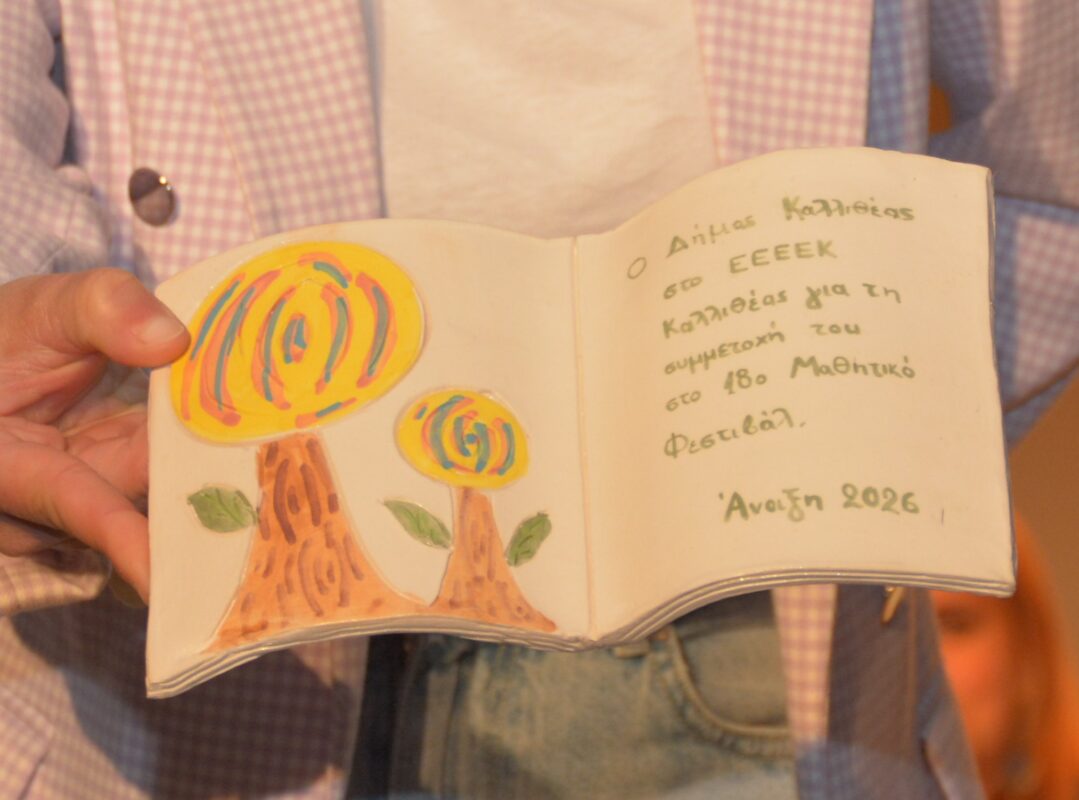 Ο Δήμος Καλλιθέας
στο ΕΕΕΕΚ
Καλλιθέας για τη
συμμετοχή του
στο 18ο Μαθητικό
Φεστιβάλ.
Άνοιξη 2026